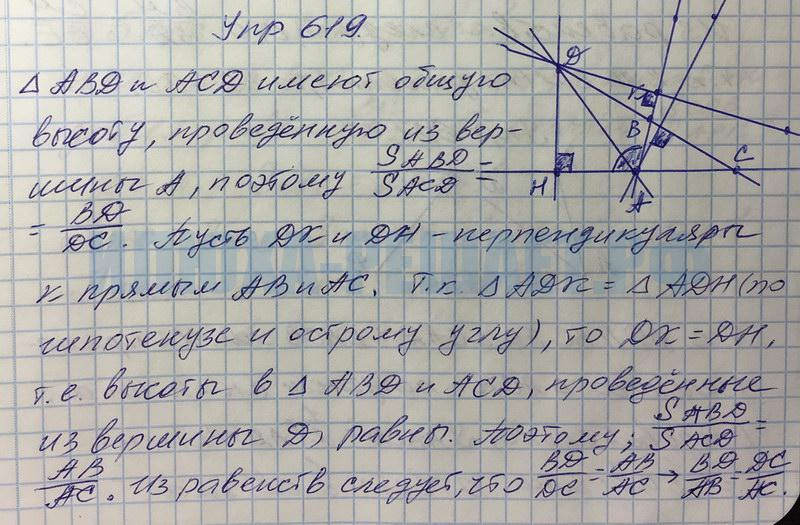 Упр 619.
△ ABD и ACD имеют общую
высоту, проведённую из вер-
шины A, поэтому SABD/SACD =
= BD/DC. Пусть DK и DH - перпендикуляры
к прямым AB и AC. Т.к. △ ADK = △ ADH (по
гипотенузе и острому углу), то DK = DH,
т.е. высоты в △ ABD и ACD, проведённые
из вершины D, равны. Поэтому; SABD/SACD =
AB/AC. Из равенств следует, что BD/DC = AB/AC → BD/AB = DC/AC.
D
K
B
C
H
A